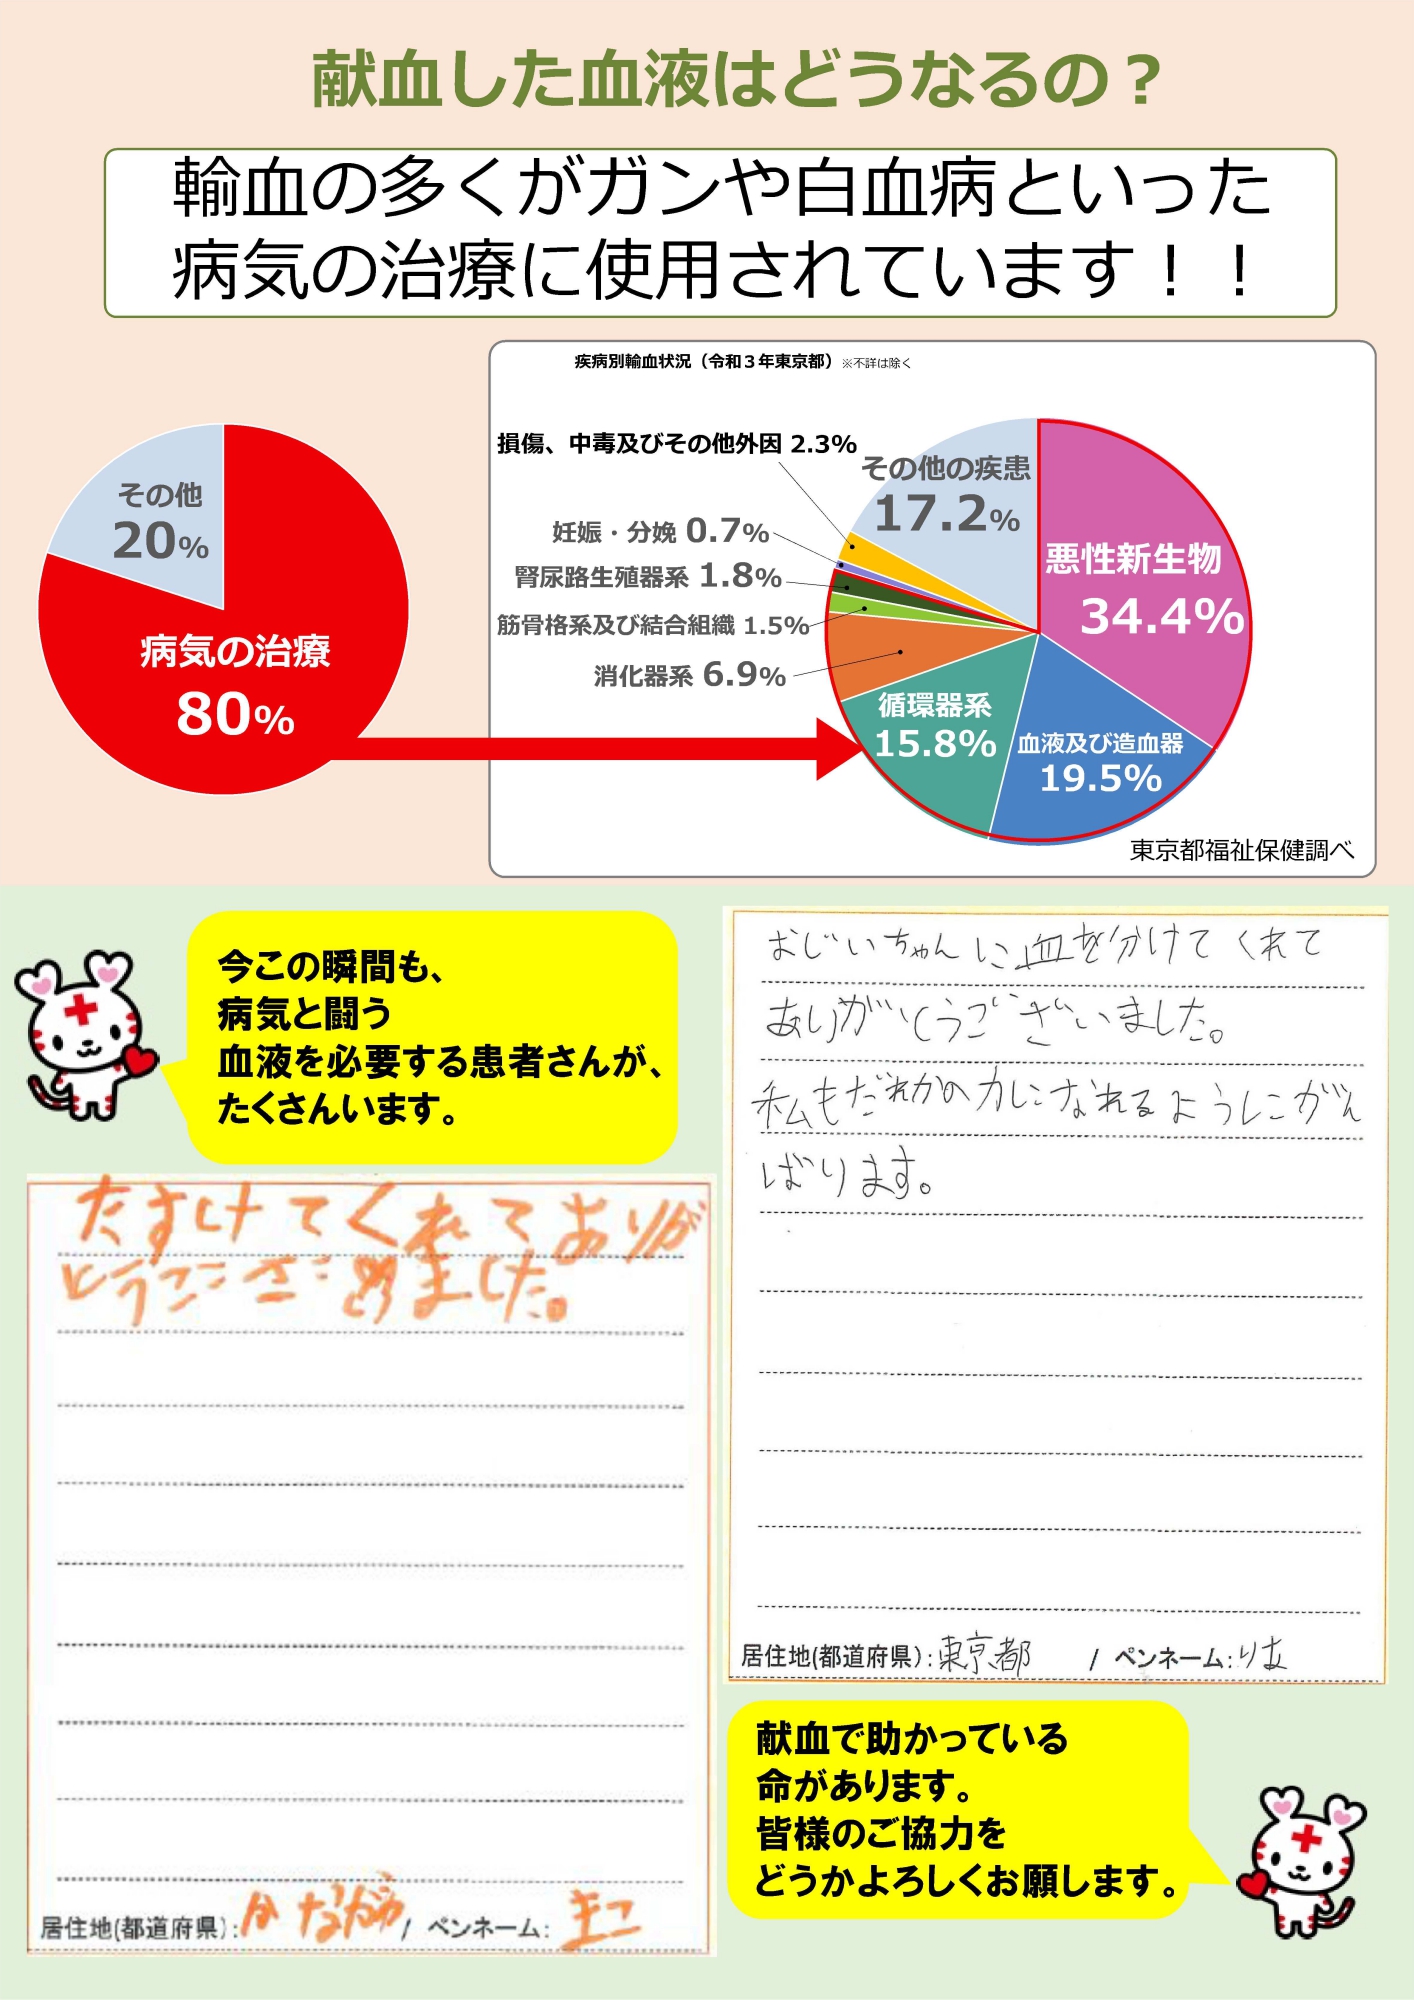 献血した血液はどうなるの？
輸血の多くがガンや白血病といった
病気の治療に使用されています！！
その他
20%
病気の治療
80%
疾病別輸血状況（令和３年東京都）※不詳は除く
損傷、中毒及びその他外因 2.3%
妊娠・分娩 0.7%
腎尿路生殖器系 1.8%
筋骨格系及び結合組織 1.5%
消化器系 6.9%
その他の疾患
17.2%
悪性新生物
34.4%
循環器系
15.8%
血液及び造血器
19.5%
東京都福祉保健調べ
今この瞬間も、
病気と闘う
血液を必要する患者さんが、
たくさんいます。
おじいちゃんに血を分けてくれて
ありがとうございました。
私もだれかの力になれるようにがん
ばります。
居住地(都道府県):東京都 / ペンネーム:りお
たすけてくれてありが
とうございました。
居住地(都道府県): / ペンネーム:
献血で助かっている
命があります。
皆様のご協力を
どうかよろしくお願します。